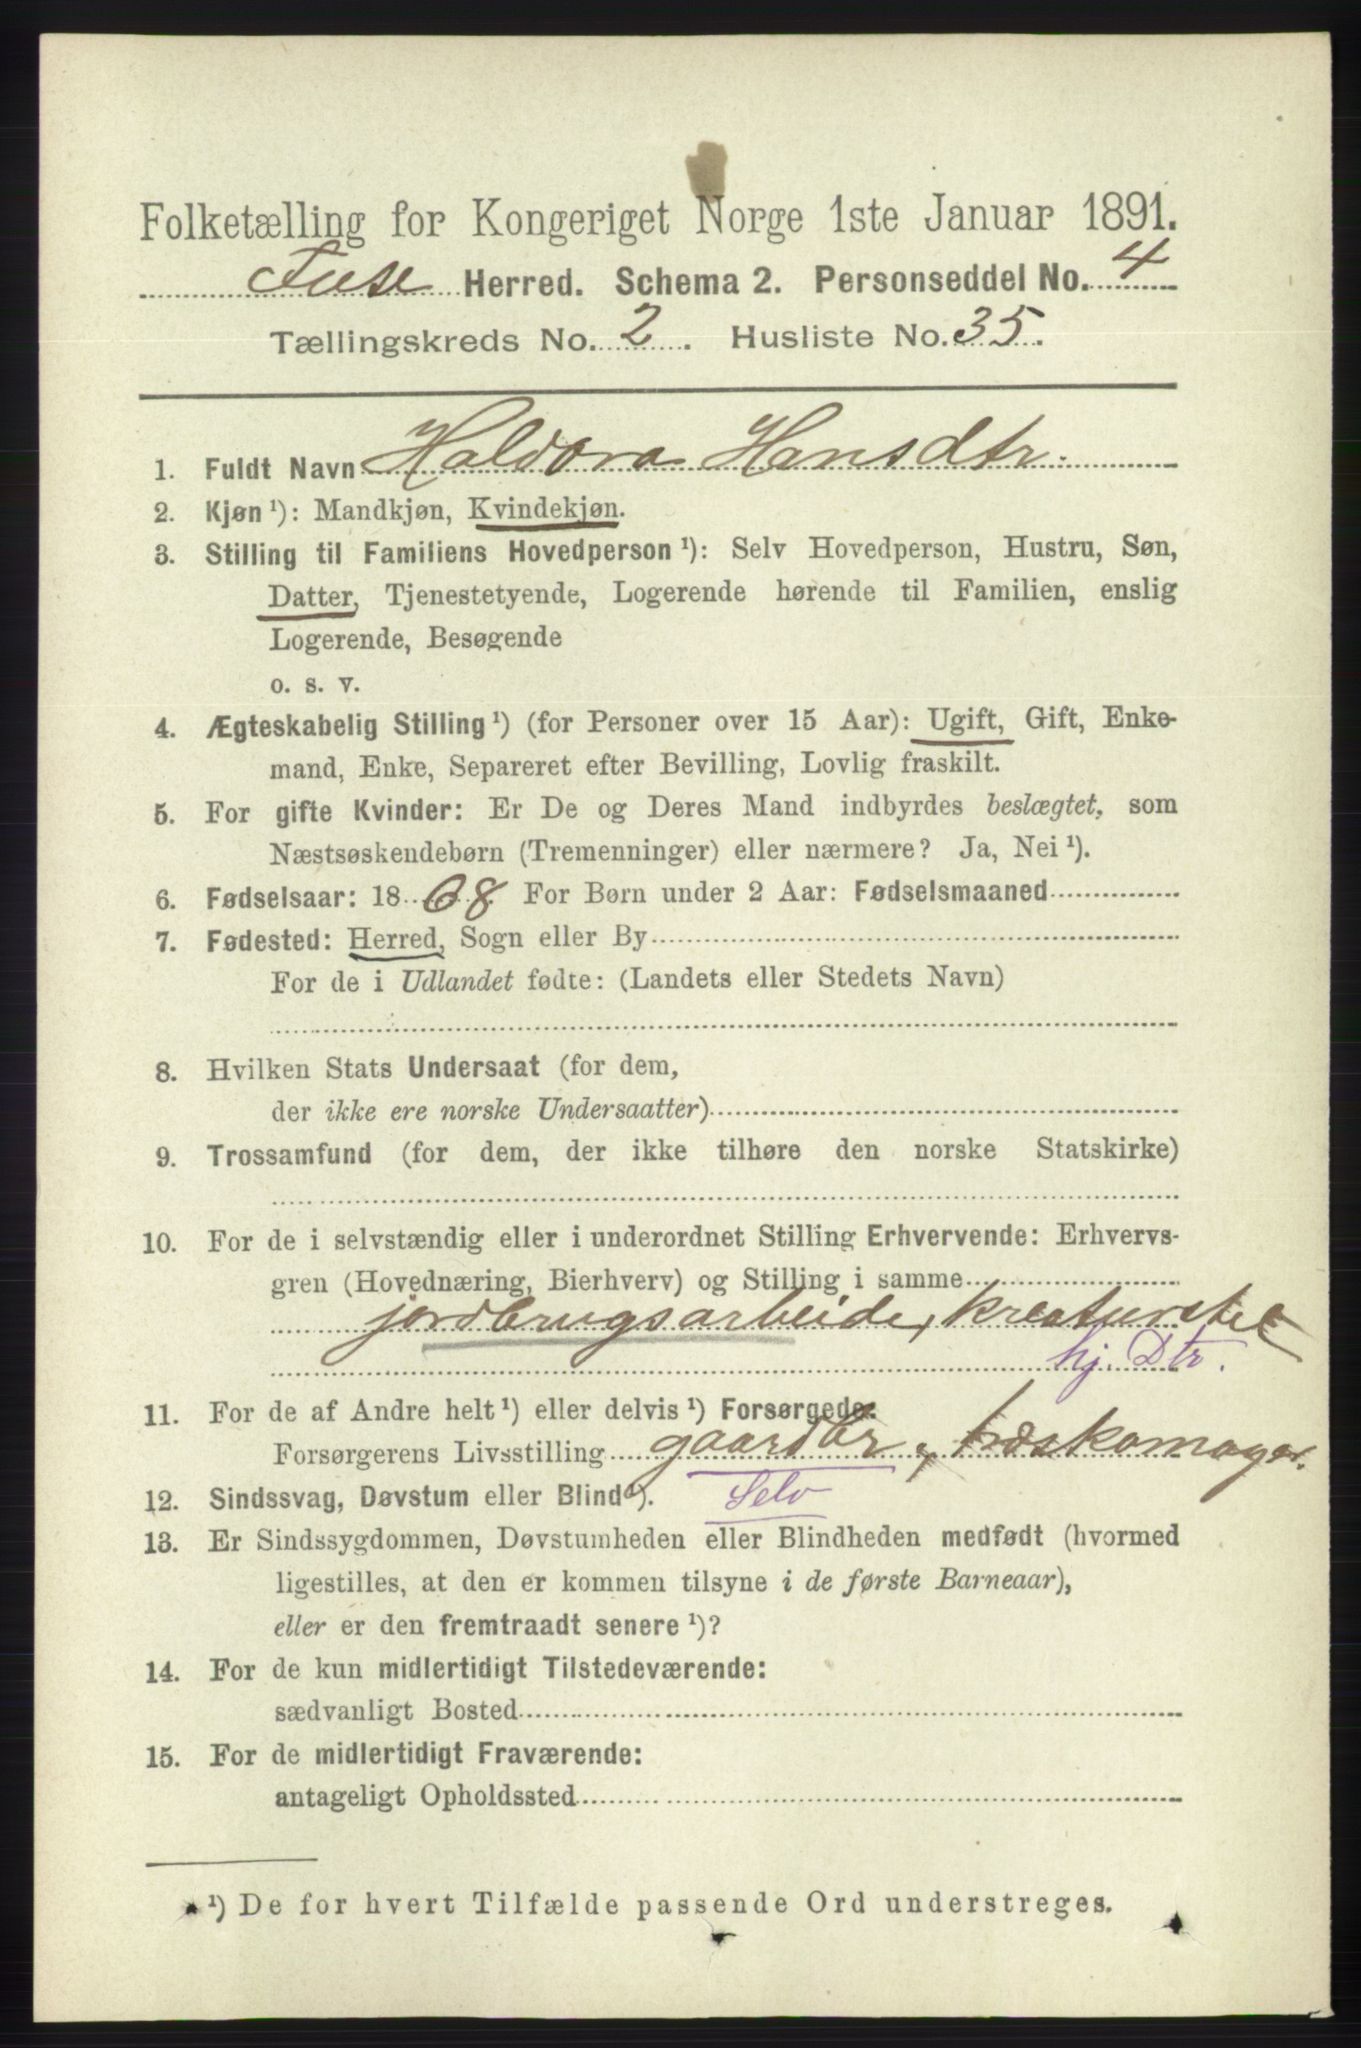 Folketælling for Kongeriget Norge 1ste Januar 1891.
Fuse Herred. Schema 2. Personseddel No. 4
Tællingskreds No. 2. Husliste No. 35.
1. Fuldt Navn Haldora Hansdtr.
2. Kjøn ¹): Mandkjøn, Kvindekjøn.
3. Stilling til Familiens Hovedperson ¹): Selv Hovedperson, Hustru, Søn,
Datter, Tjenestetyende, Logerende hørende til Familien, enslig
Logerende, Besøgende
o. s. v.
4. Ægteskabelig Stilling ¹) (for Personer over 15 Aar): Ugift, Gift, Enke-
mand, Enke, Separeret efter Bevilling, Lovlig fraskilt.
5. For gifte Kvinder: Er De og Deres Mand indbyrdes beslægtet, som
Næstsøskendebørn (Tremenninger) eller nærmere? Ja, Nei ¹).
6. Fødselsaar: 1868 For Børn under 2 Aar: Fødselsmaaned
7. Fødested: Herred, Sogn eller By
For de i Udlandet fødte: (Landets eller Stedets Navn)
8. Hvilken Stats Undersaat (for dem,
der ikke ere norske Undersaatter)
9. Trossamfund (for dem, der ikke tilhøre den norske Statskirke)
10. For de i selvstændig eller i underordnet Stilling Erhvervende: Erhvervs-
gren (Hovednæring, Bierhverv) og Stilling i samme
jordbrugsarbeide, kreaturstel
hj. Dtr.
11. For de af Andre helt ¹) eller delvis ¹) Forsørgede:
Forsørgerens Livsstilling gaardbr, træskomager.
12. Sindssvag, Døvstum eller Blind ¹). Selv
13. Er Sindssygdommen, Døvstumheden eller Blindheden medfødt (hvormed
ligestilles, at den er kommen tilsyne i de første Barneaar),
eller er den fremtraadt senere ¹)?
14. For de kun midlertidigt Tilstedeværende:
sædvanligt Bosted
15. For de midlertidigt Fraværende:
antageligt Opholdssted
¹) De for hvert Tilfælde passende Ord understreges.